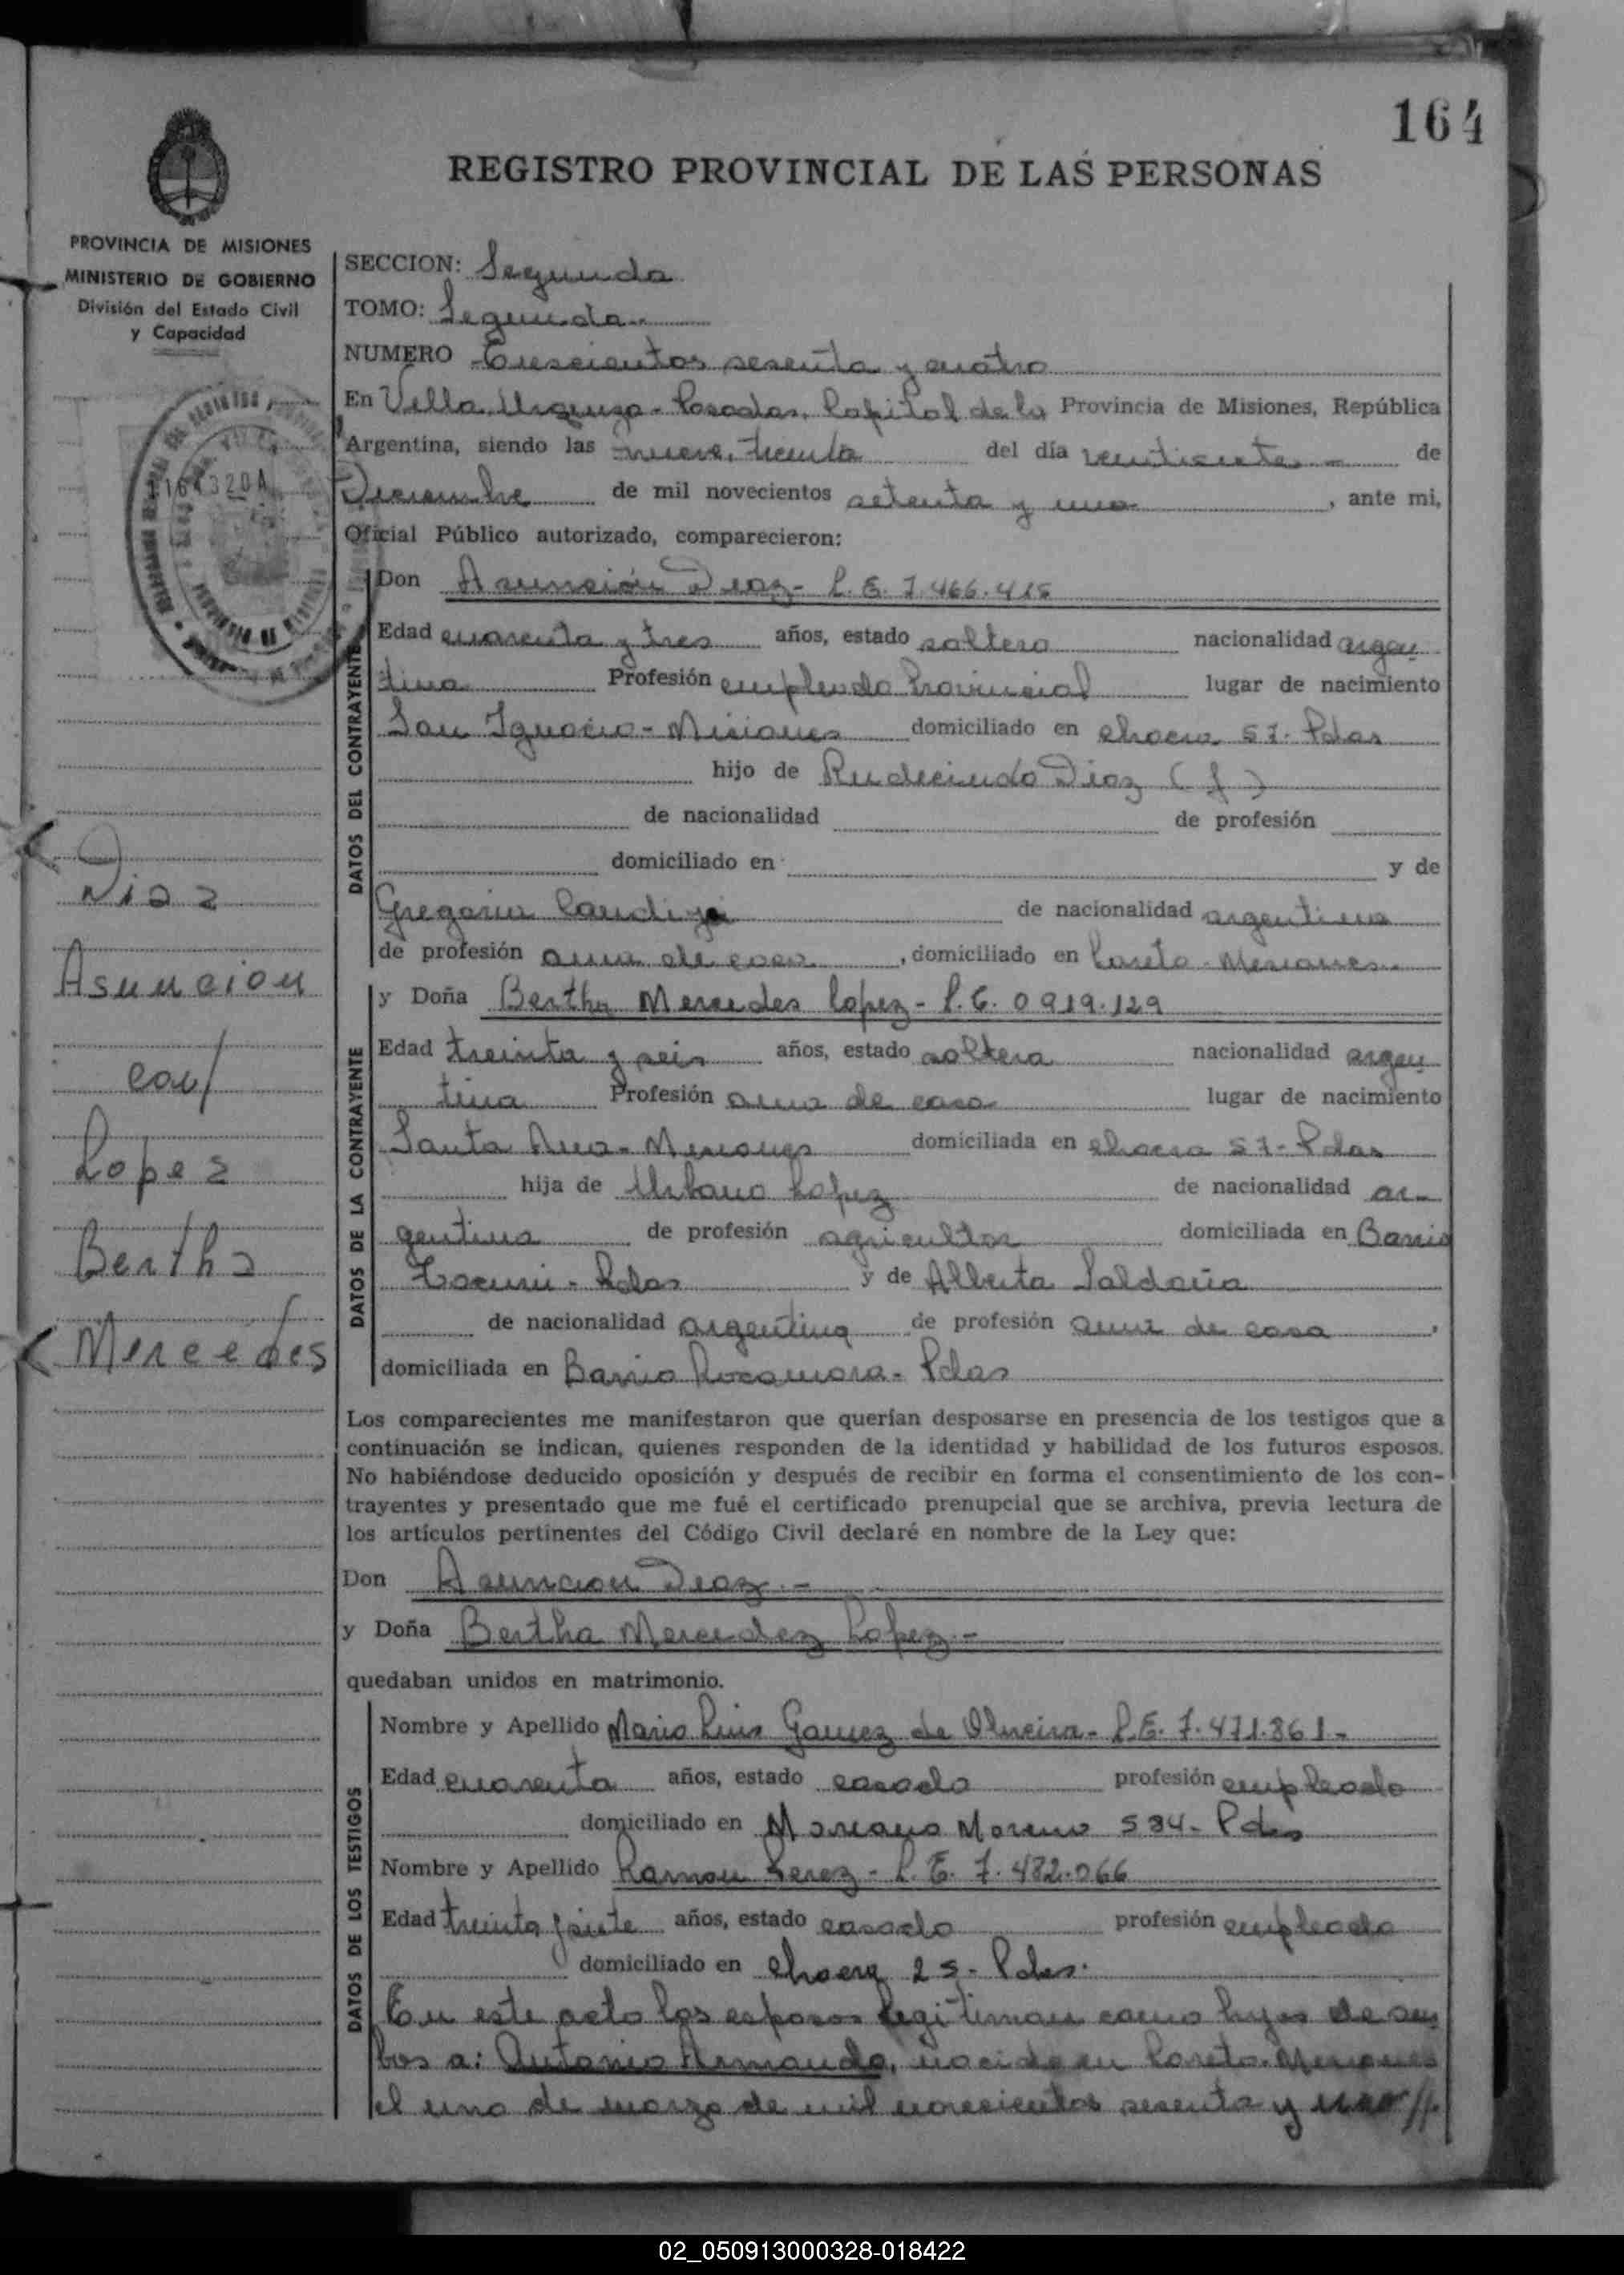 164
REGISTRO PROVINCIAL DE LAS PERSONAS
PROVINCIA DE MISIONES
MINISTERIO DE GOBIERNO
División del Estado Civil
y Capacidad
SECCION: Segunda
TOMO: Segundo
NUMERO Trescientos sesenta y cuatro
En Villa Urquiza - Posadas, Capital de la Provincia de Misiones, República
Argentina, siendo las nueve, treinta del día veintisiete de
Diciembre de mil novecientos setenta y uno, ante mi,
Oficial Público autorizado, comparecieron:
DATOS DEL CONTRAYENTE
Don Asunción Diaz - L. E. 7.466.415
Edad cuarenta y tres años, estado soltero nacionalidad argen
tina Profesión empleado Provincial lugar de nacimiento
San Ignacio - Misiones domiciliado en chacra 57 - Pdas
hijo de Rudecindo Diaz (f)
de nacionalidad de profesión
domiciliado en y de
Gregoria de nacionalidad argentina
de profesión ama de casa, domiciliado en Loreto - Misiones
DATOS DE LA CONTRAYENTE
y Doña Bertha Mercedes Lopez - L.C. 0919.129
Edad treinta y seis años, estado soltera nacionalidad argen
tina Profesión ama de casa lugar de nacimiento
Santa Ana - Misiones domiciliada en chacra 57 - Pdas
hija de Urbano Lopez de nacionalidad ar-
gentina de profesión agricultor domiciliada en Barrio
- Pdas y de Alberta Saldaña
de nacionalidad argentina de profesión ama de casa,
domiciliada en Barrio Rocamora - Pdas
Diaz
Asuncion
con/
Lopez
Bertha
Mercedes
Los comparecientes me manifestaron que querían desposarse en presencia de los testigos que a
continuación se indican, quienes responden de la identidad y habilidad de los futuros esposos.
No habiéndose deducido oposición y después de recibir en forma el consentimiento de los con-
trayentes y presentado que me fué el certificado prenupcial que se archiva, previa lectura de
los artículos pertinentes del Código Civil declaré en nombre de la Ley que:
Don Asuncion Diaz.-
y Doña Bertha Mercedez Lopez.-
quedaban unidos en matrimonio.
DATOS DE LOS TESTIGOS
Nombre y Apellido Mario Luis Gamez de Olveira - L.E. 7.471.861.-
Edad cuarenta años, estado casado profesión empleado
domiciliado en Mariano Moreno 534 - Pdas
Nombre y Apellido Ramon Perez - L. E. 7.482.066
Edad treinta y siete años, estado casado profesión empleado
domiciliado en chacra 25 - Pdas.
En este acto los esposos legitiman como hijos de am
bos a: Antonio Armando, nacido en Loreto. Misiones
el uno de marzo de mil novecientos sesenta y uno //
02_050913000328-018422